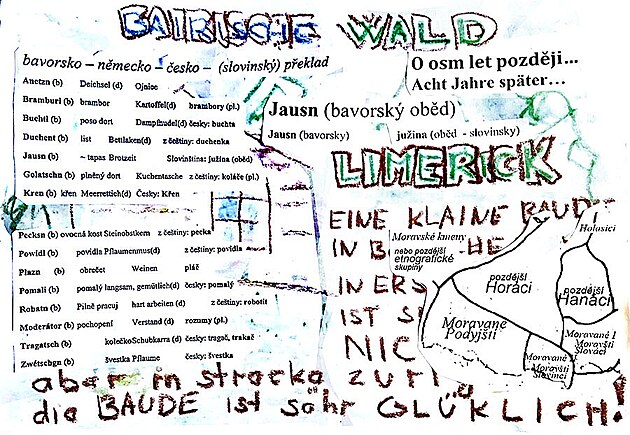 BAIRISCHE WALD
bavorsko – německo – česko – (slovinský) překlad
O osm let později...
Acht Jahre später…
Anetzn (b) Deichsel (d) Ojnice
Bramburi (b) brambor Kartoffel(d) brambory (pl.)
Buchtl (b) poso dort Dampfnudel(d) česky: buchta
Duchent (b) list Bettlaken(d) z češtiny: duchenka
Jausn (b) ~ tapas Brouzeit Slovinština: južina (oběd)
Golatschn (b) plněný Kuchentasche z češtiny: koláče (pl.)
Kren (b) křen Meerrettich(d) Česky: Křen
Jausn (bavorský oběd)
Jausn (bavorsky) južina (oběd - slovinsky)
LIMERICK
Pecksn (b) ovocná kost Steinobstkern z češtiny: pecka
Powidl (b) povidla Pflaumenmus(d) z češtiny: povidla
Plazn (b) obrečet Weinen pláč
Pomali (b) pomalý langsam, gemütlich(d) česky: pomalý
Robatn (b) Pilně pracuj hart arbeiten (d) z češtiny: robotit
Moderátor (b) pochopení Verstand (d) rozumy (pl.)
Tragatsch (b) kolečko Schubkarra (d) česky: tragač, trakač
Zwétschgn (b) švestka Pflaume česky: švestka
EINE KLAINE BAUD
IN B HE
IN ERS
IST S
NIC
Moravské kmeny
nebo pozdější
etnografické
skupiny
Holasici
později
Horáci
pozdější
Hanáci
Moravane
Podyjští
Moravané I
Moravští
Slováci
Moravští
Slovinci
aber in strocka zuri
die BAUDE ist sähr GLÜKLICH!